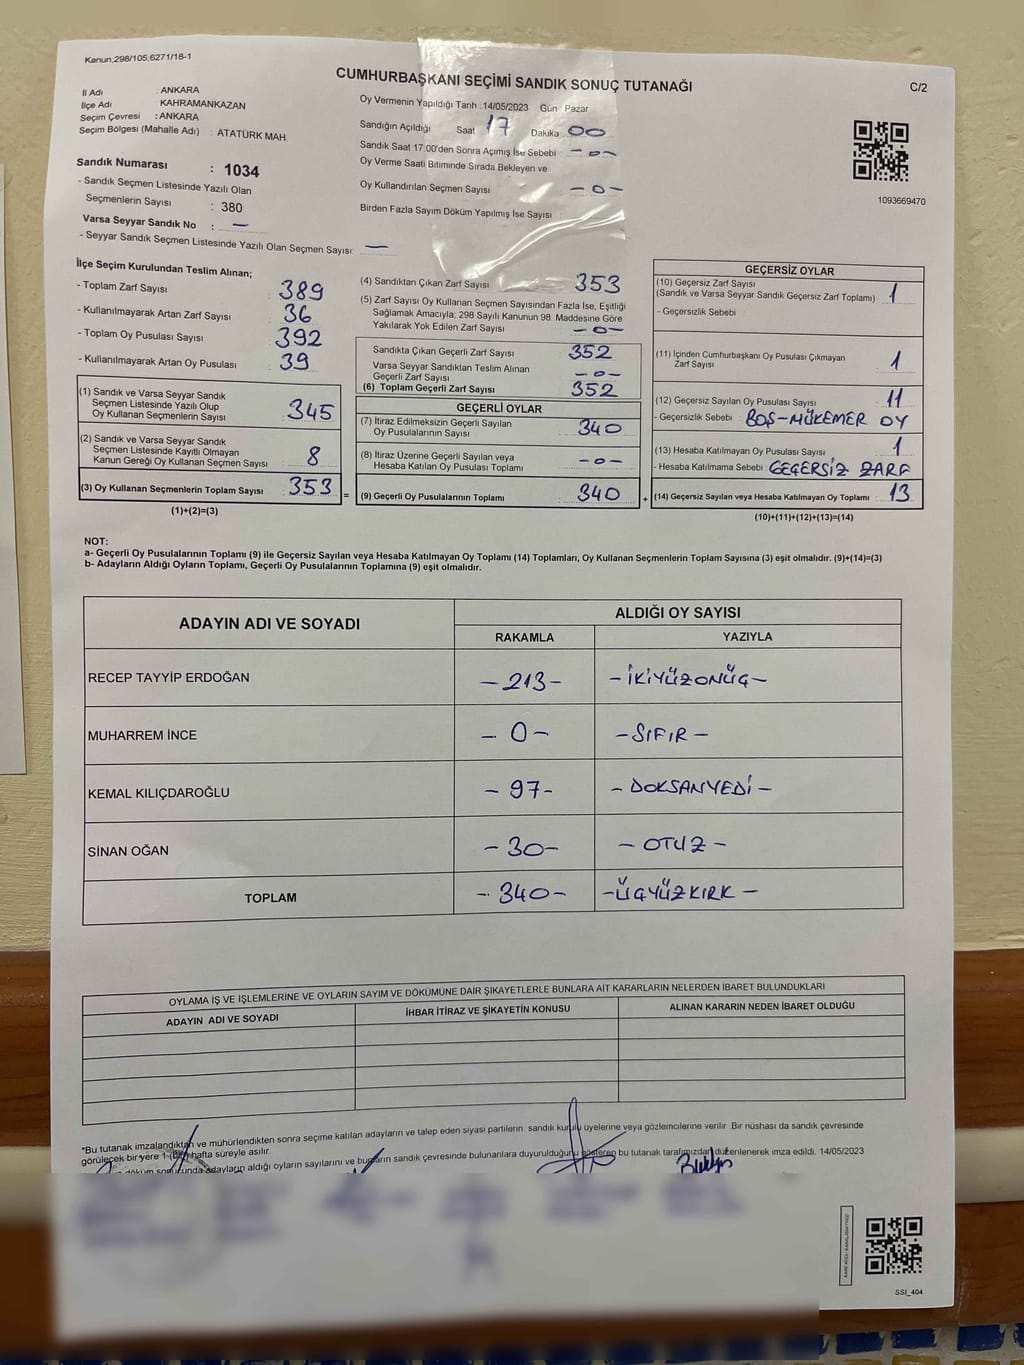 Kanun;298/105,6271/18-1
CUMHURBAŞKANI SEÇİMİ SANDIK SONUÇ TUTANAĞI
C/2
İl Adı : ANKARA
İlçe Adı : KAHRAMANKAZAN
Seçim Çevresi : ANKARA
Seçim Bölgesi (Mahalle Adı) : ATATÜRK MAH.
Sandık Numarası : 1034
- Sandık Seçmen Listesinde Yazılı Olan
Seçmenlerin Sayısı : 380
Varsa Seyyar Sandık No : —
- Seyyar Sandık Seçmen Listesinde Yazılı Olan Seçmen Sayısı: —
Oy Vermenin Yapıldığı Tarih :14/05/2023 Gün Pazar
Sandığın Açıldığı Saat 17 Dakika 00
Sandık Saat 17:00'den Sonra Açımış İse Sebebi -0-
Oy Verme Saati Bitiminde Sırada Bekleyen ve
Oy Kullandırılan Seçmen Sayısı -0-
Birden Fazla Sayım Döküm Yapılmış İse Sayısı
1093669470
İlçe Seçim Kurulundan Teslim Alınan;
- Toplam Zarf Sayısı 389
- Kullanılmayarak Artan Zarf Sayısı 36
- Toplam Oy Pusulası Sayısı 392
- Kullanılmayarak Artan Oy Pusulası 39
(1) Sandık ve Varsa Seyyar Sandık
Seçmen Listesinde Yazılı Olup
Oy Kullanan Seçmenlerin Sayısı 345
(2) Sandık ve Varsa Seyyar Sandık
Seçmen Listesinde Kayıtlı Olmayan
Kanun Gereği Oy Kullanan Seçmen Sayısı 8
(3) Oy Kullanan Seçmenlerin Toplam Sayısı 353 =
(1)+(2)=(3)
(4) Sandıktan Çıkan Zarf Sayısı 353
(5) Zarf Sayısı Oy Kullanan Seçmen Sayısından Fazla İse, Eşitliği
Sağlamak Amacıyla; 298 Sayılı Kanunun 98. Maddesine Göre
Yakılarak Yok Edilen Zarf Sayısı -0-
Sandıkta Çıkan Geçerli Zarf Sayısı 352
Varsa Seyyar Sandıktan Teslim Alınan
Geçerli Zarf Sayısı -0-
(6) Toplam Geçerli Zarf Sayısı 352
GEÇERLİ OYLAR
(7) İtiraz Edilmeksizin Geçerli Sayılan
Oy Pusulalarının Sayısı 340
(8) İtiraz Üzerine Geçerli Sayılan veya
Hesaba Katılan Oy Pusulası Toplamı -0-
(9) Geçerli Oy Pusulalarının Toplamı 340 +
GEÇERSİZ OYLAR
(10) Geçersiz Zarf Sayısı
(Sandık ve Varsa Seyyar Sandık Geçersiz Zarf Toplamı) : 1
- Geçersizlik Sebebi
(11) İçinden Cumhurbaşkanı Oy Pusulası Çıkmayan
Zarf Sayısı 1
(12) Geçersiz Sayılan Oy Pusulası Sayısı 11
- Geçersizlik Sebebi : BOŞ-MÜKEMER OY
(13) Hesaba Katılmayan Oy Pusulası Sayısı 1
- Hesaba Katılmama Sebebi : GEÇERSİZ ZARF
(14) Geçersiz Sayılan veya Hesaba Katılmayan Oy Toplamı : 13
(10)+(11)+(12)+(13)=(14)
NOT:
a- Geçerli Oy Pusulalarının Toplamı (9) ile Geçersiz Sayılan veya Hesaba Katılmayan Oy Toplamı (14) Toplamları, Oy Kullanan Seçmenlerin Toplam Sayısına (3) eşit olmalıdır. (9)+(14)=(3)
b- Adayların Aldığı Oyların Toplamı, Geçerli Oy Pusulalarının Toplamına (9) eşit olmalıdır.
ADAYIN ADI VE SOYADI
ALDIĞI OY SAYISI
RAKAMLA YAZIYLA
RECEP TAYYİP ERDOĞAN -213- -İKİYÜZONÜÇ-
MUHARREM İNCE -0- -SIFIR-
KEMAL KILIÇDAROĞLU -97- -DOKSANYEDİ-
SİNAN OĞAN -30- -OTUZ-
TOPLAM -340- -ÜÇYÜZKIRK-
OYLAMA İŞ VE İŞLEMLERİNE VE OYLARIN SAYIM VE DÖKÜMÜNE DAİR ŞİKAYETLERLE BUNLARA AİT KARARLARIN NELERDEN İBARET BULUNDUKLARI
ADAYIN ADI VE SOYADI İHBAR İTİRAZ VE ŞİKAYETİN KONUSU ALINAN KARARIN NEDEN İBARET OLDUĞU
*Bu tutanak imzalandıktan ve mühürlendikten sonra seçime katılan adayların ve talep eden siyasi partilerin sandık kurulu üyelerine veya gözlemcilerine verilir. Bir nüshası da sandık çevresinde
görülecek bir yere 1 hafta süreyle asılır.
döküm sonucunda adayların aldığı oyların sayılarını ve bunların sandık çevresinde bulunanlara duyurulduğunu gösteren bu tutanak tarafımızdan düzenlenerek imza edildi. 14/05/2023
SSI_404